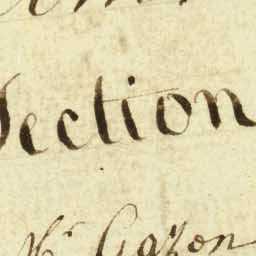 Section
Mr. Gazon